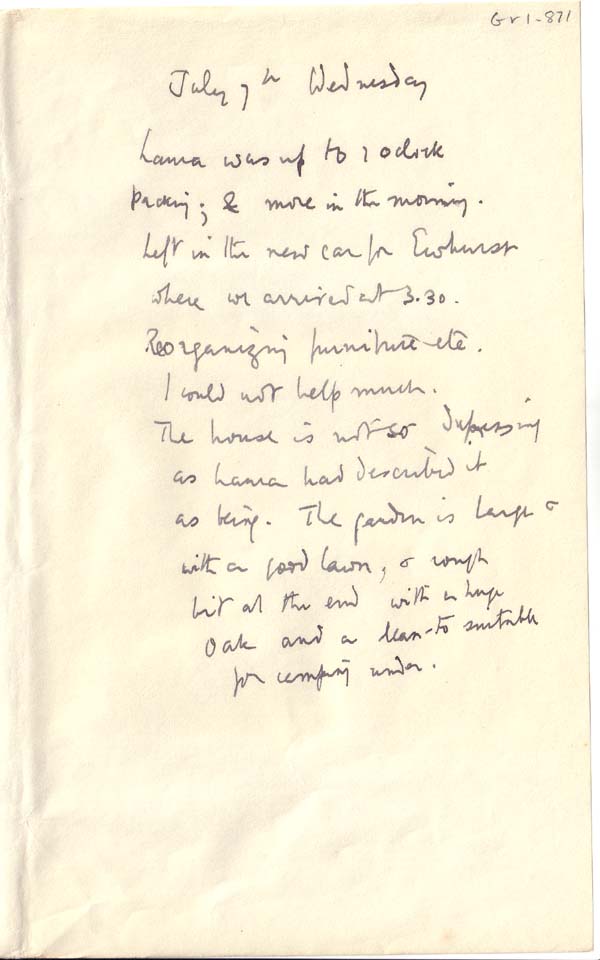 Gr1-871
July 7th Wednesday
Laura was up to 1 oclock
packing; & more in the morning.
Left in the new car for Ewhurst
where we arrived at 3.30.
Reorganizing furniture etc.
I could not help much.
The house is not so depressing
as Laura had described it
as being. The garden is large &
with a good lawn, & rough
bit at the end with a huge
Oak and a lean-to suitable
for camping under.